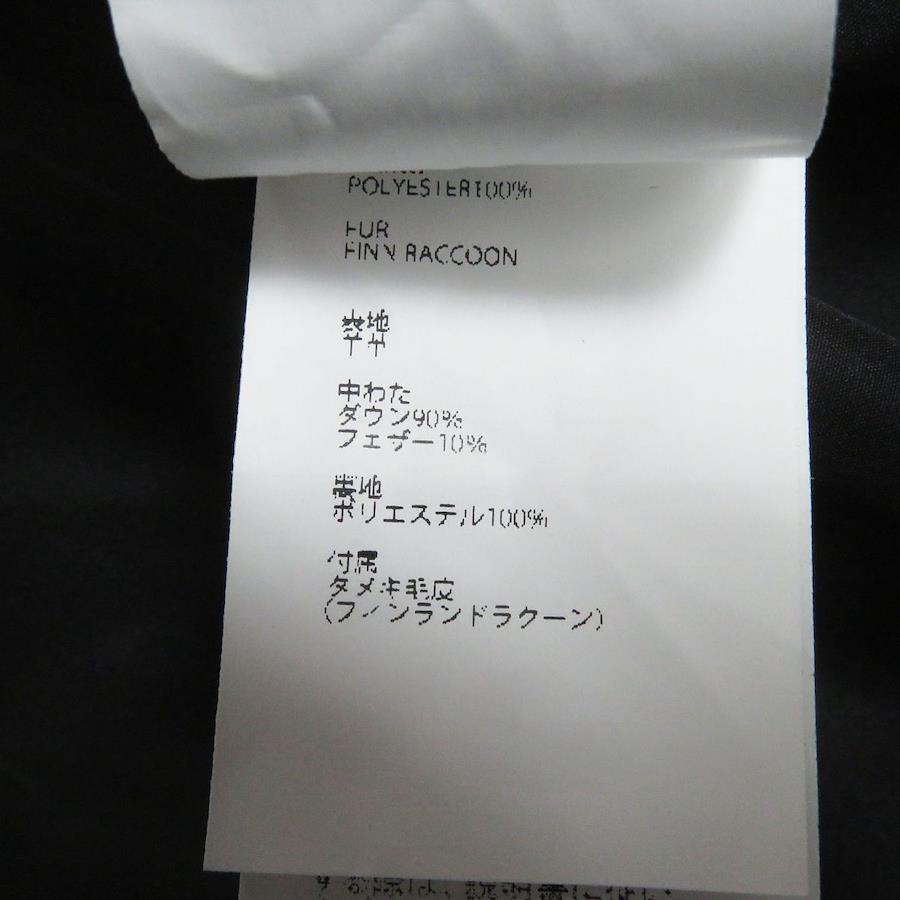 POLYESTER100%
FUR
FINN RACCOON
表地
中わた
ダウン90%
フェザー10%
裏地
ポリエステル100%
付属
タヌキ毛皮
(フィンランドラクーン)